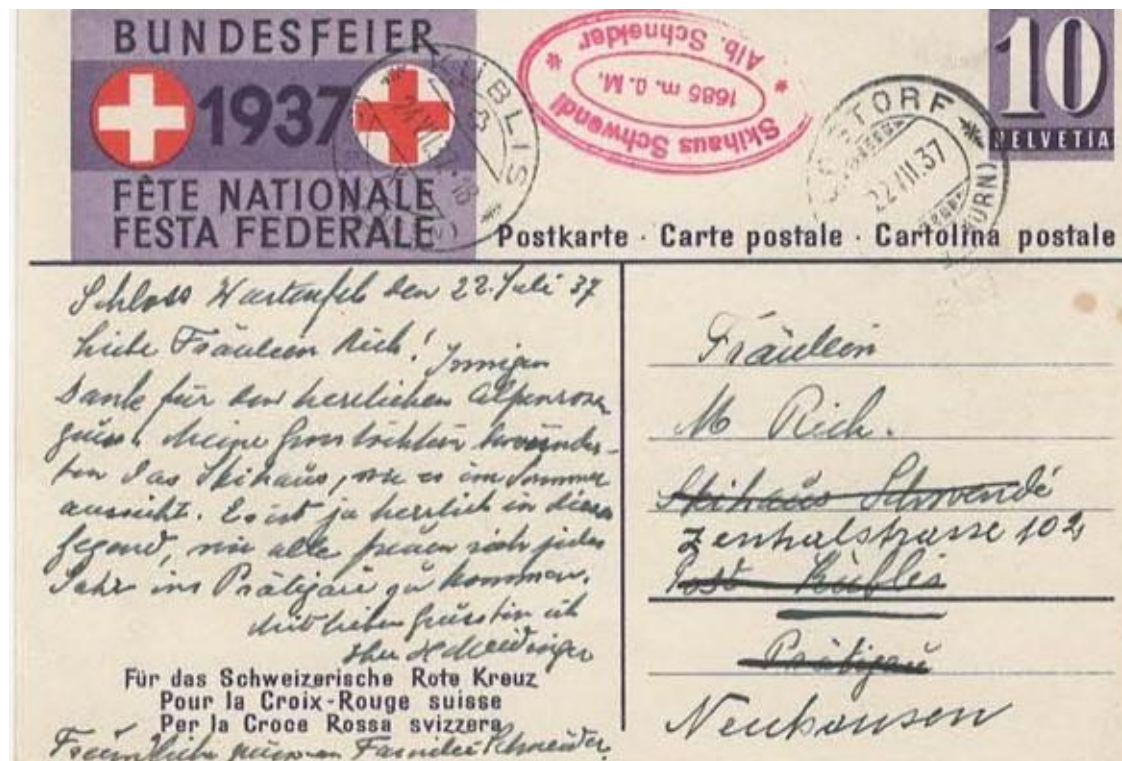 BUNDESFEIER
1937
FÊTE NATIONALE
FESTA FEDERALE
KÜBLIS
Skihaus Schwendi
1685 m. ü. M.
Alb. Schneider
LOSTORF
22.VII.37
10
HELVETIA
Postkarte · Carte postale · Cartolina postale
Schloss Wartenfels den 22. Juli 37
Liebe Fräulein Rich! Innigen
Dank für den herrlichen Alpenrosen
gruss. Meine Grosstöchter bewunder-
ten das Skihaus, wie es im Sommer
aussieht. Es ist ja herrlich in dieser
Gegend, wir alle freuen sich jedes
Jahr ins Prätigau zu kommen.
Mit lieben Grüssen bin ich
Ihre
Für das Schweizerische Rote Kreuz
Pour la Croix-Rouge suisse
Per la Croce Rossa svizzera
Freundliche Familie Schneider
Fräulein
M Rich.
Skihaus Schwendi
Zentralstrasse 102
Post Küblis
Prätigau
Neuhausen